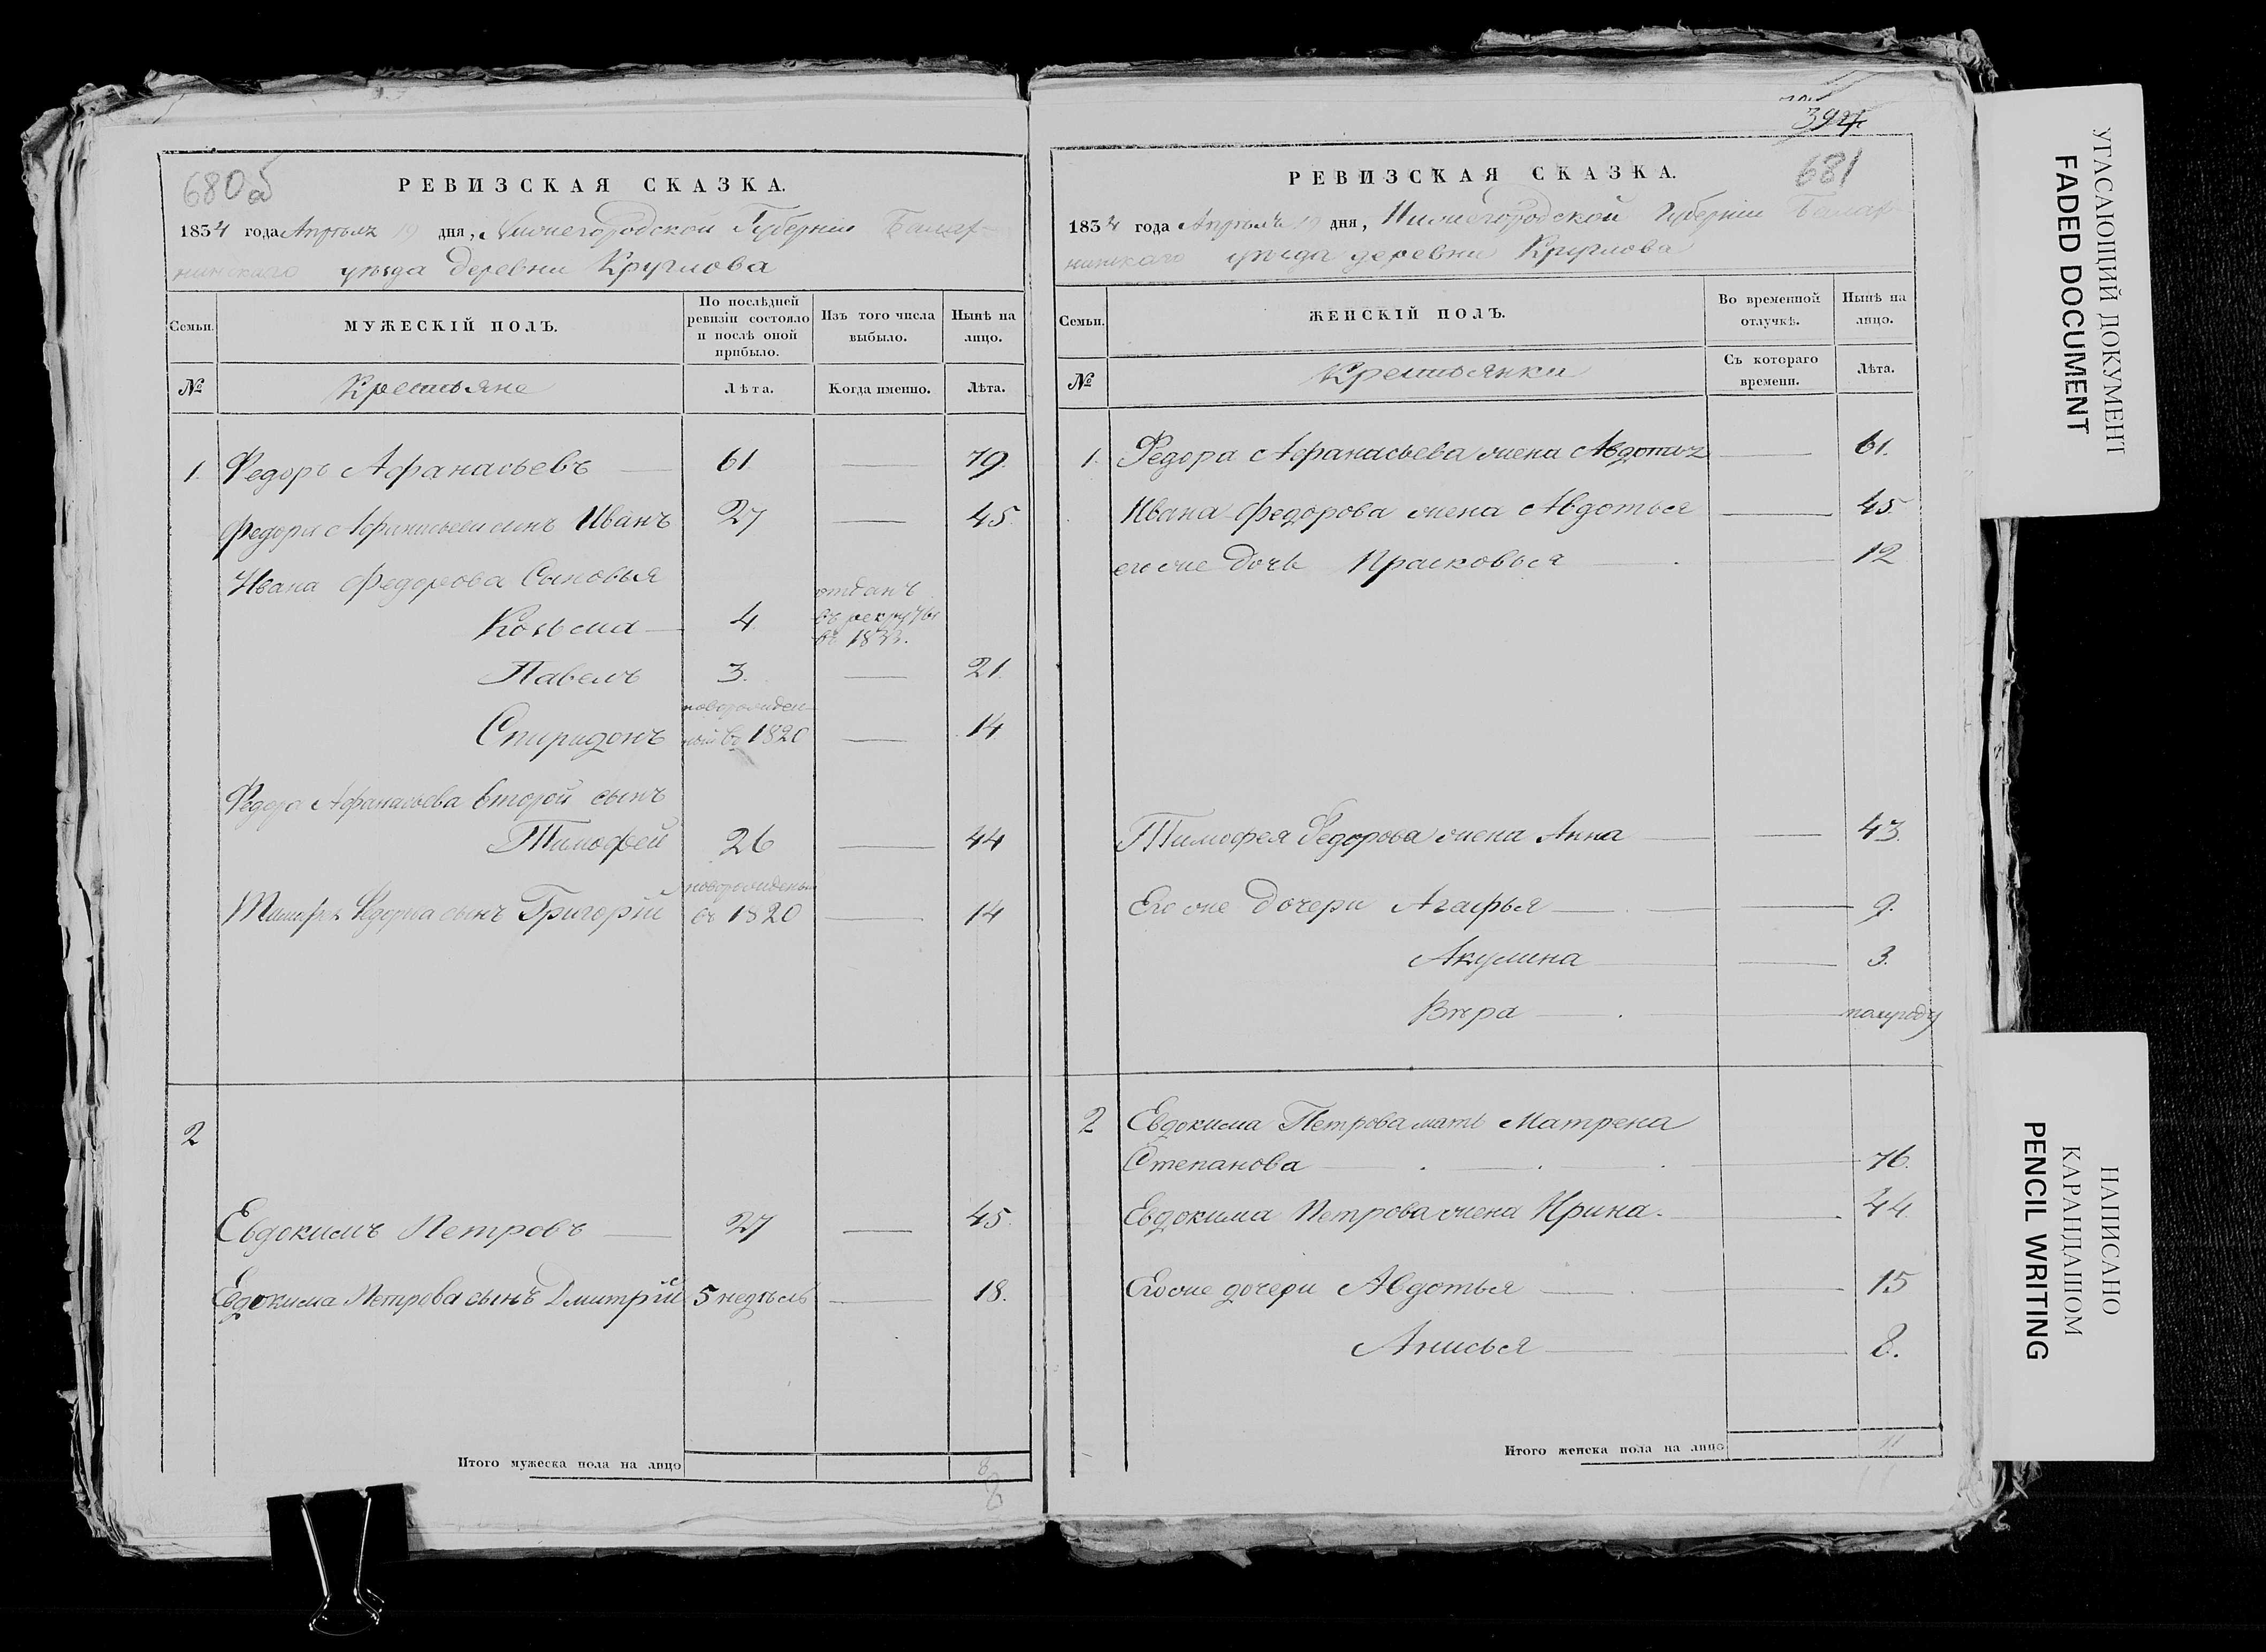 680об
РЕВИЗСКАЯ СКАЗКА.
1834 года Апрѣля 19 дня, Нижегородской Губерніи Балах-
нинскаго уѣзда деревни Круглова
Семьи.
МУЖЕСКІЙ ПОЛЪ.
По послѣдней ревизіи состояло и послѣ оной прибыло.
Изъ того числа выбыло.
Нынѣ на лицо.
№ Крестьяне Лѣта. Когда именно. Лѣта.
1. Федоръ Афанасьевъ — 61 — 79.
Федора Афанасьева сынъ Иванъ 27 — 45.
Ивана Федорова Сыновья
отданъ
Козьма — 4 въ рекруты
въ 1833.
Павелъ 3. — 21.
новорожден-
Спиридонъ ной въ 1820 — 14.
Федора Афанасьева второй сынъ
Тимофей 26 — 44
новорожденый
Тимофея Федорова сынъ Григорій въ 1820 — 14
2
Евдокимъ Петровъ — 27 — 45.
Евдокима Петрова сынъ Дмитрій 5 недѣль — 18.
Итого мужеска пола на лицо 8
8
394
681
РЕВИЗСКАЯ СКАЗКА.
1834 года Апрѣля 19 дня, Нижегородской Губерніи Балах-
нинскаго уѣзда деревни Круглова
Семьи.
ЖЕНСКІЙ ПОЛЪ.
Во временной отлучкѣ.
Нынѣ на лицо.
№ Крестьянки Съ котораго времени. Лѣта.
1. Федора Афанасьева жена Авдотья — 61.
Ивана Федорова жена Авдотья — 45
его же дочь Прасковья — 12
Тимофея Федорова жена Анна — 43.
Его же дочери Агафья — 9.
Акулина — 3.
Вѣра — полугоду
2 Евдокима Петрова мать Матрена
Степанова — 76.
Евдокима Петрова жена Ирина. — 44
Его же дочери Авдотья — 15
Анисья — 8.
Итого женска пола на лицо 11
11
УГАСАЮЩИЙ ДОКУМЕНТ
FADED DOCUMENT
НАПИСАНО
КАРАНДАШОМ
PENCIL WRITING